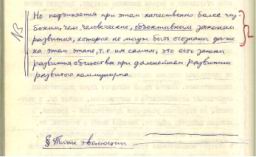 Но подчиняется при этом качественно более глу-
боким, чем человеческие, объективным законам
развития, которые не могут быть осознаны даже
на этом этапе, т.е. им самим, это есть закон
развития общества при дальнейшем развитии
развитого коммунизма.
§ Типы эволюции